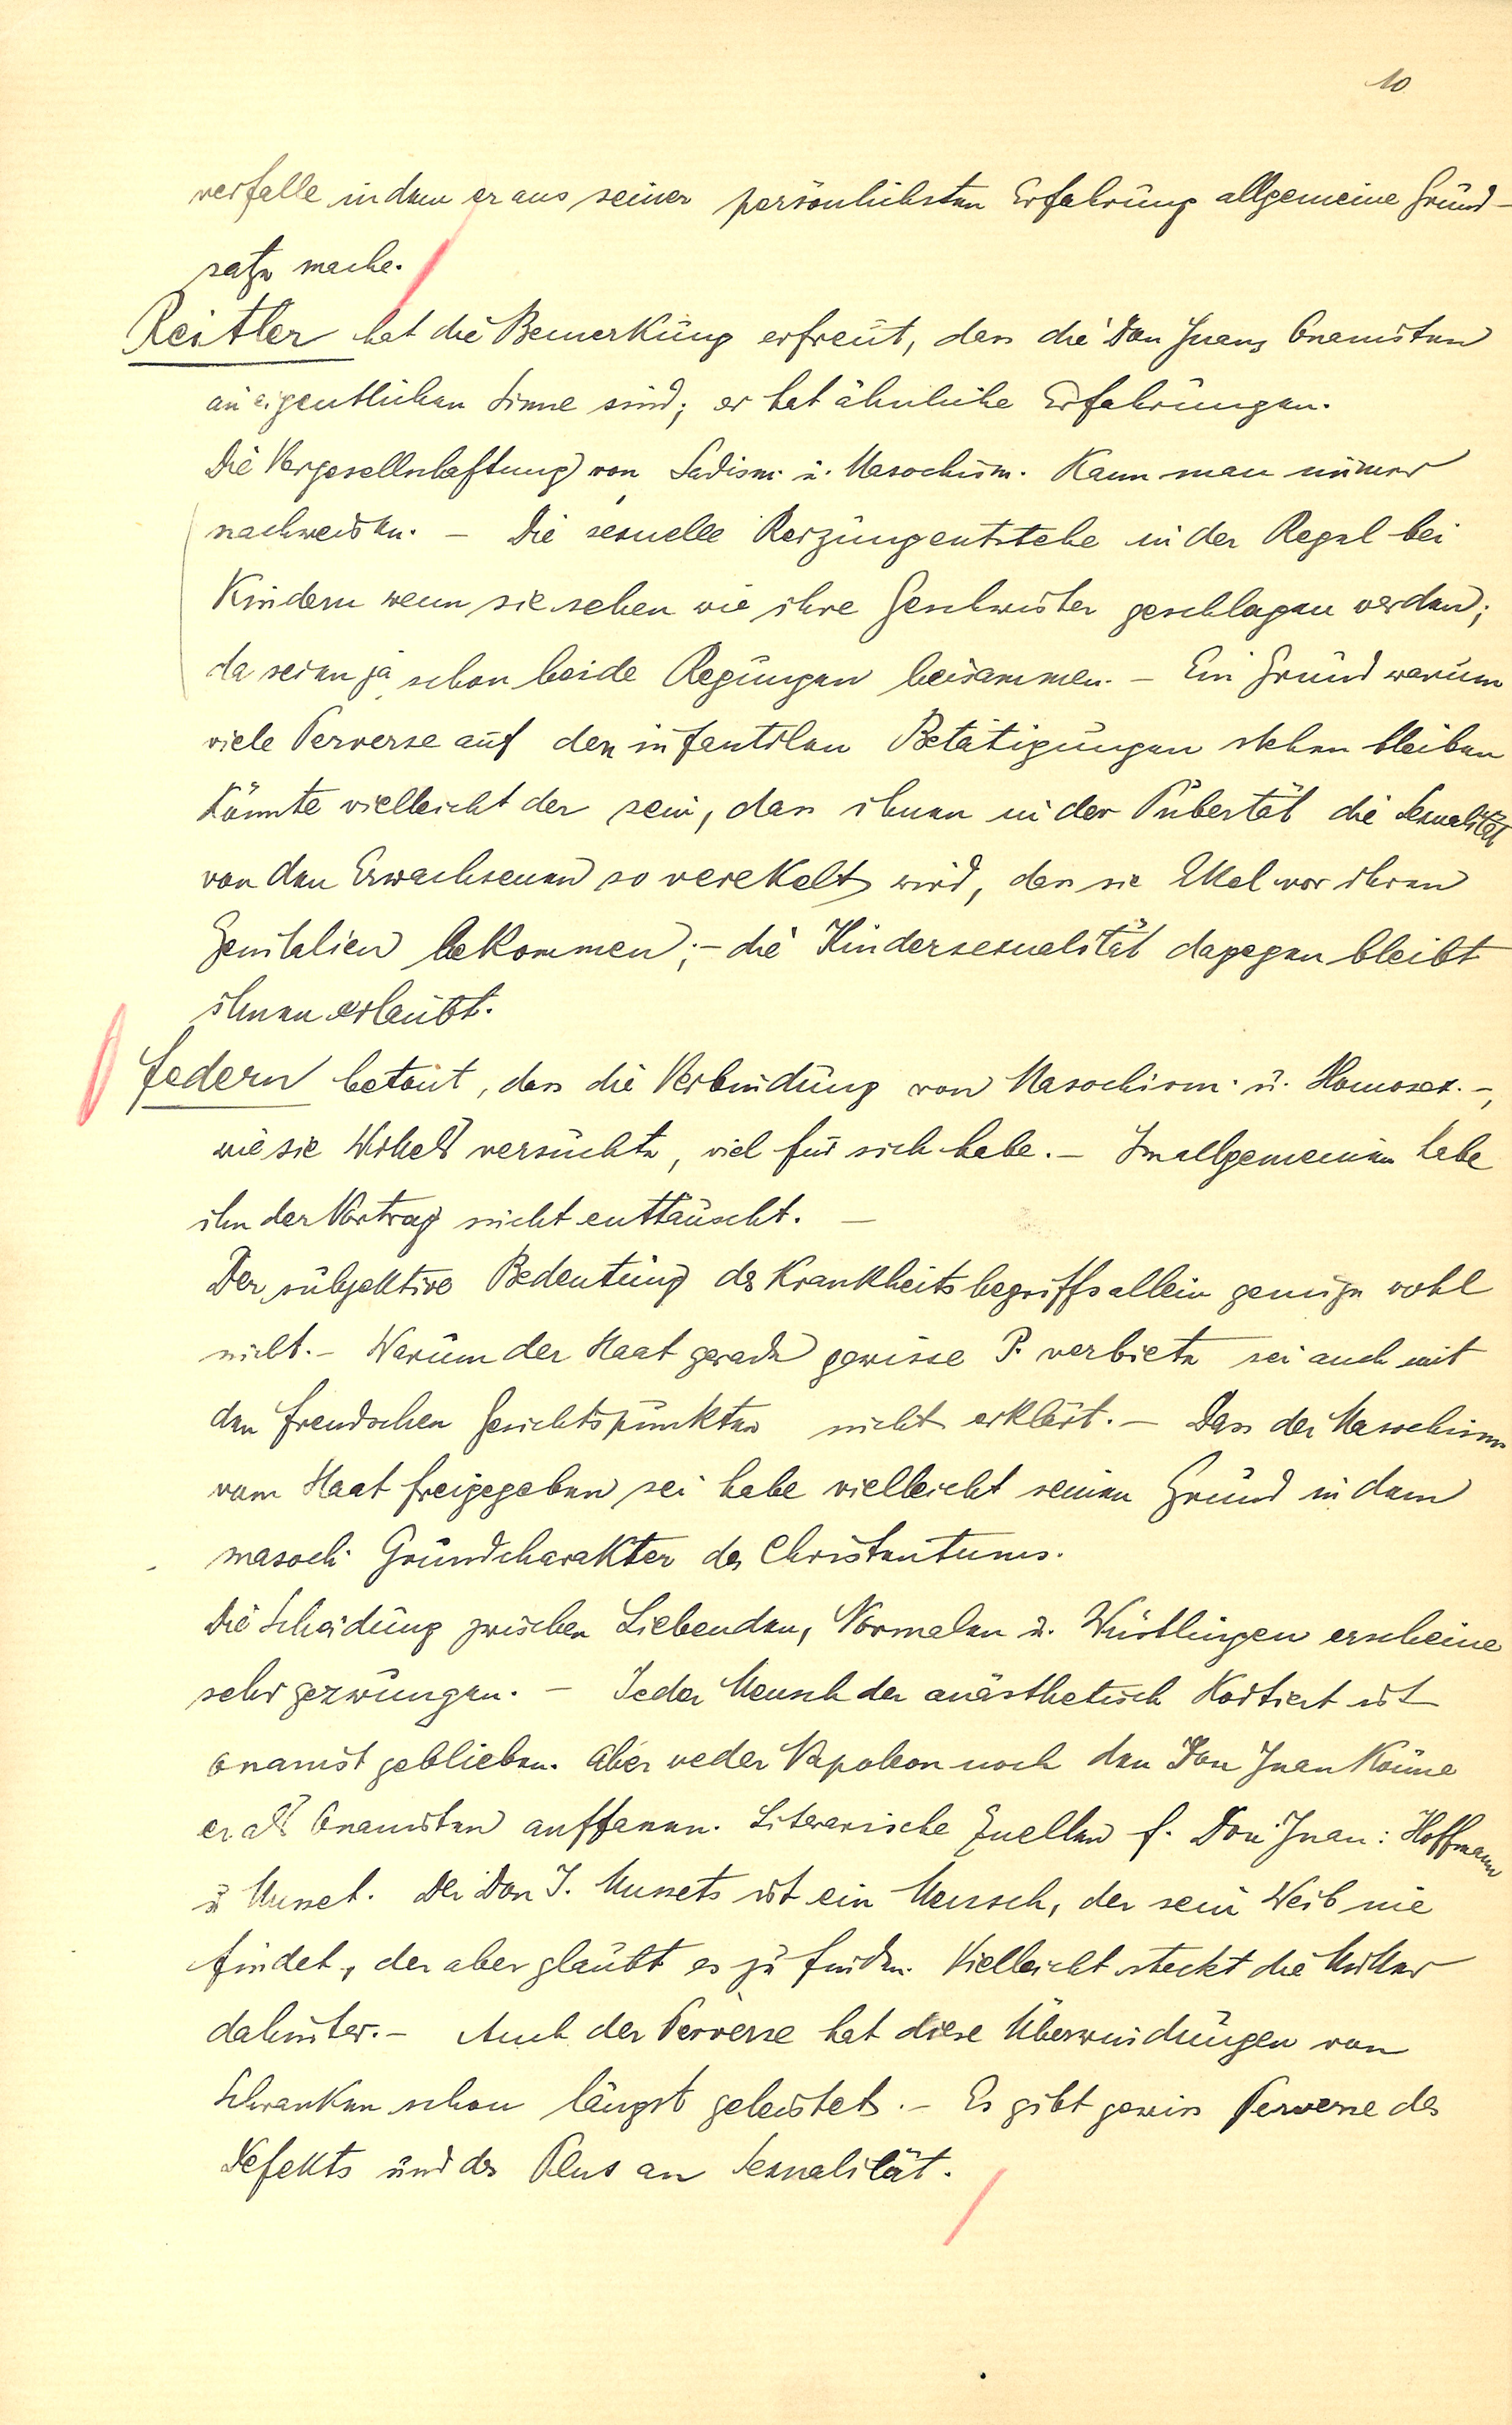 10
verfalle indem er aus seiner persönlichsten Erfahrung allgemeine Grund-
sätze mache.
Reitler hat die Bemerkung erfreut, dass die Don Juans Onanisten
im eigentlichen Sinne sind; er hat ähnliche Erfahrungen.
Die Vergesellschaftung von Sadism. u. Masochism. Kann man immer
nachweisen. – Die sexuelle Reizung entstehe in der Regel bei
Kindern wenn sie sehen wie ihre Geschwister geschlagen werden;
da seien ja schon beide Regungen beisammen. – Ein Grund warum
viele Perverse auf den infantilen Betätigungen stehen bleiben
könnte vielleicht der sein, dass ihnen in der Pubertät die Sexualität
von den Erwachsenen so verekelt wird, dass sie Ekel vor ihren
Genitalien bekommen; – die Kindersexualität dagegen bleibt
ihnen erlaubt.
Federn betont, dass die Verbindung von Masochism. u. Homosex. –,
wie sie Wittels versuchte, viel für sich habe. – Im allgemeinen habe
ihn der Vortrag nicht enttäuscht. –
Der subjektive Bedeutung des Krankheitsbegriffs allein genüge wohl
nicht. – Warum der Staat gerade gewisse P. verbiete sei auch mit
den Freudschen Gesichtspunkten nicht erklärt. – Dass der Masochism
vom Staat freigegeben sei habe vielleicht seinen Grund in dem
masoch. Grundcharakter des Christentums.
Die Scheidung zwischen Liebenden, Normalen u. Wüstlingen erscheine
sehr gezwungen. – Jeder Mensch der anästhetisch Koitiert ist
Onanist geblieben. Aber weder Napoleon noch den Don Juan Könne
er als Onanisten auffassen. Literarische Quellen f. Don Juan: Hoffmann
u Musset. Der Don J. Mussets ist ein Mensch, der sein Weib nie
findet, der aber glaubt es zu finden. Vielleicht steckt die Mutter
dahinter. – Auch der Perverse hat diese Überwindungen von
Schranken schon längst geleistet. – Es gibt gewiss Perverse des
Defekts und des Plus an Sexualität.